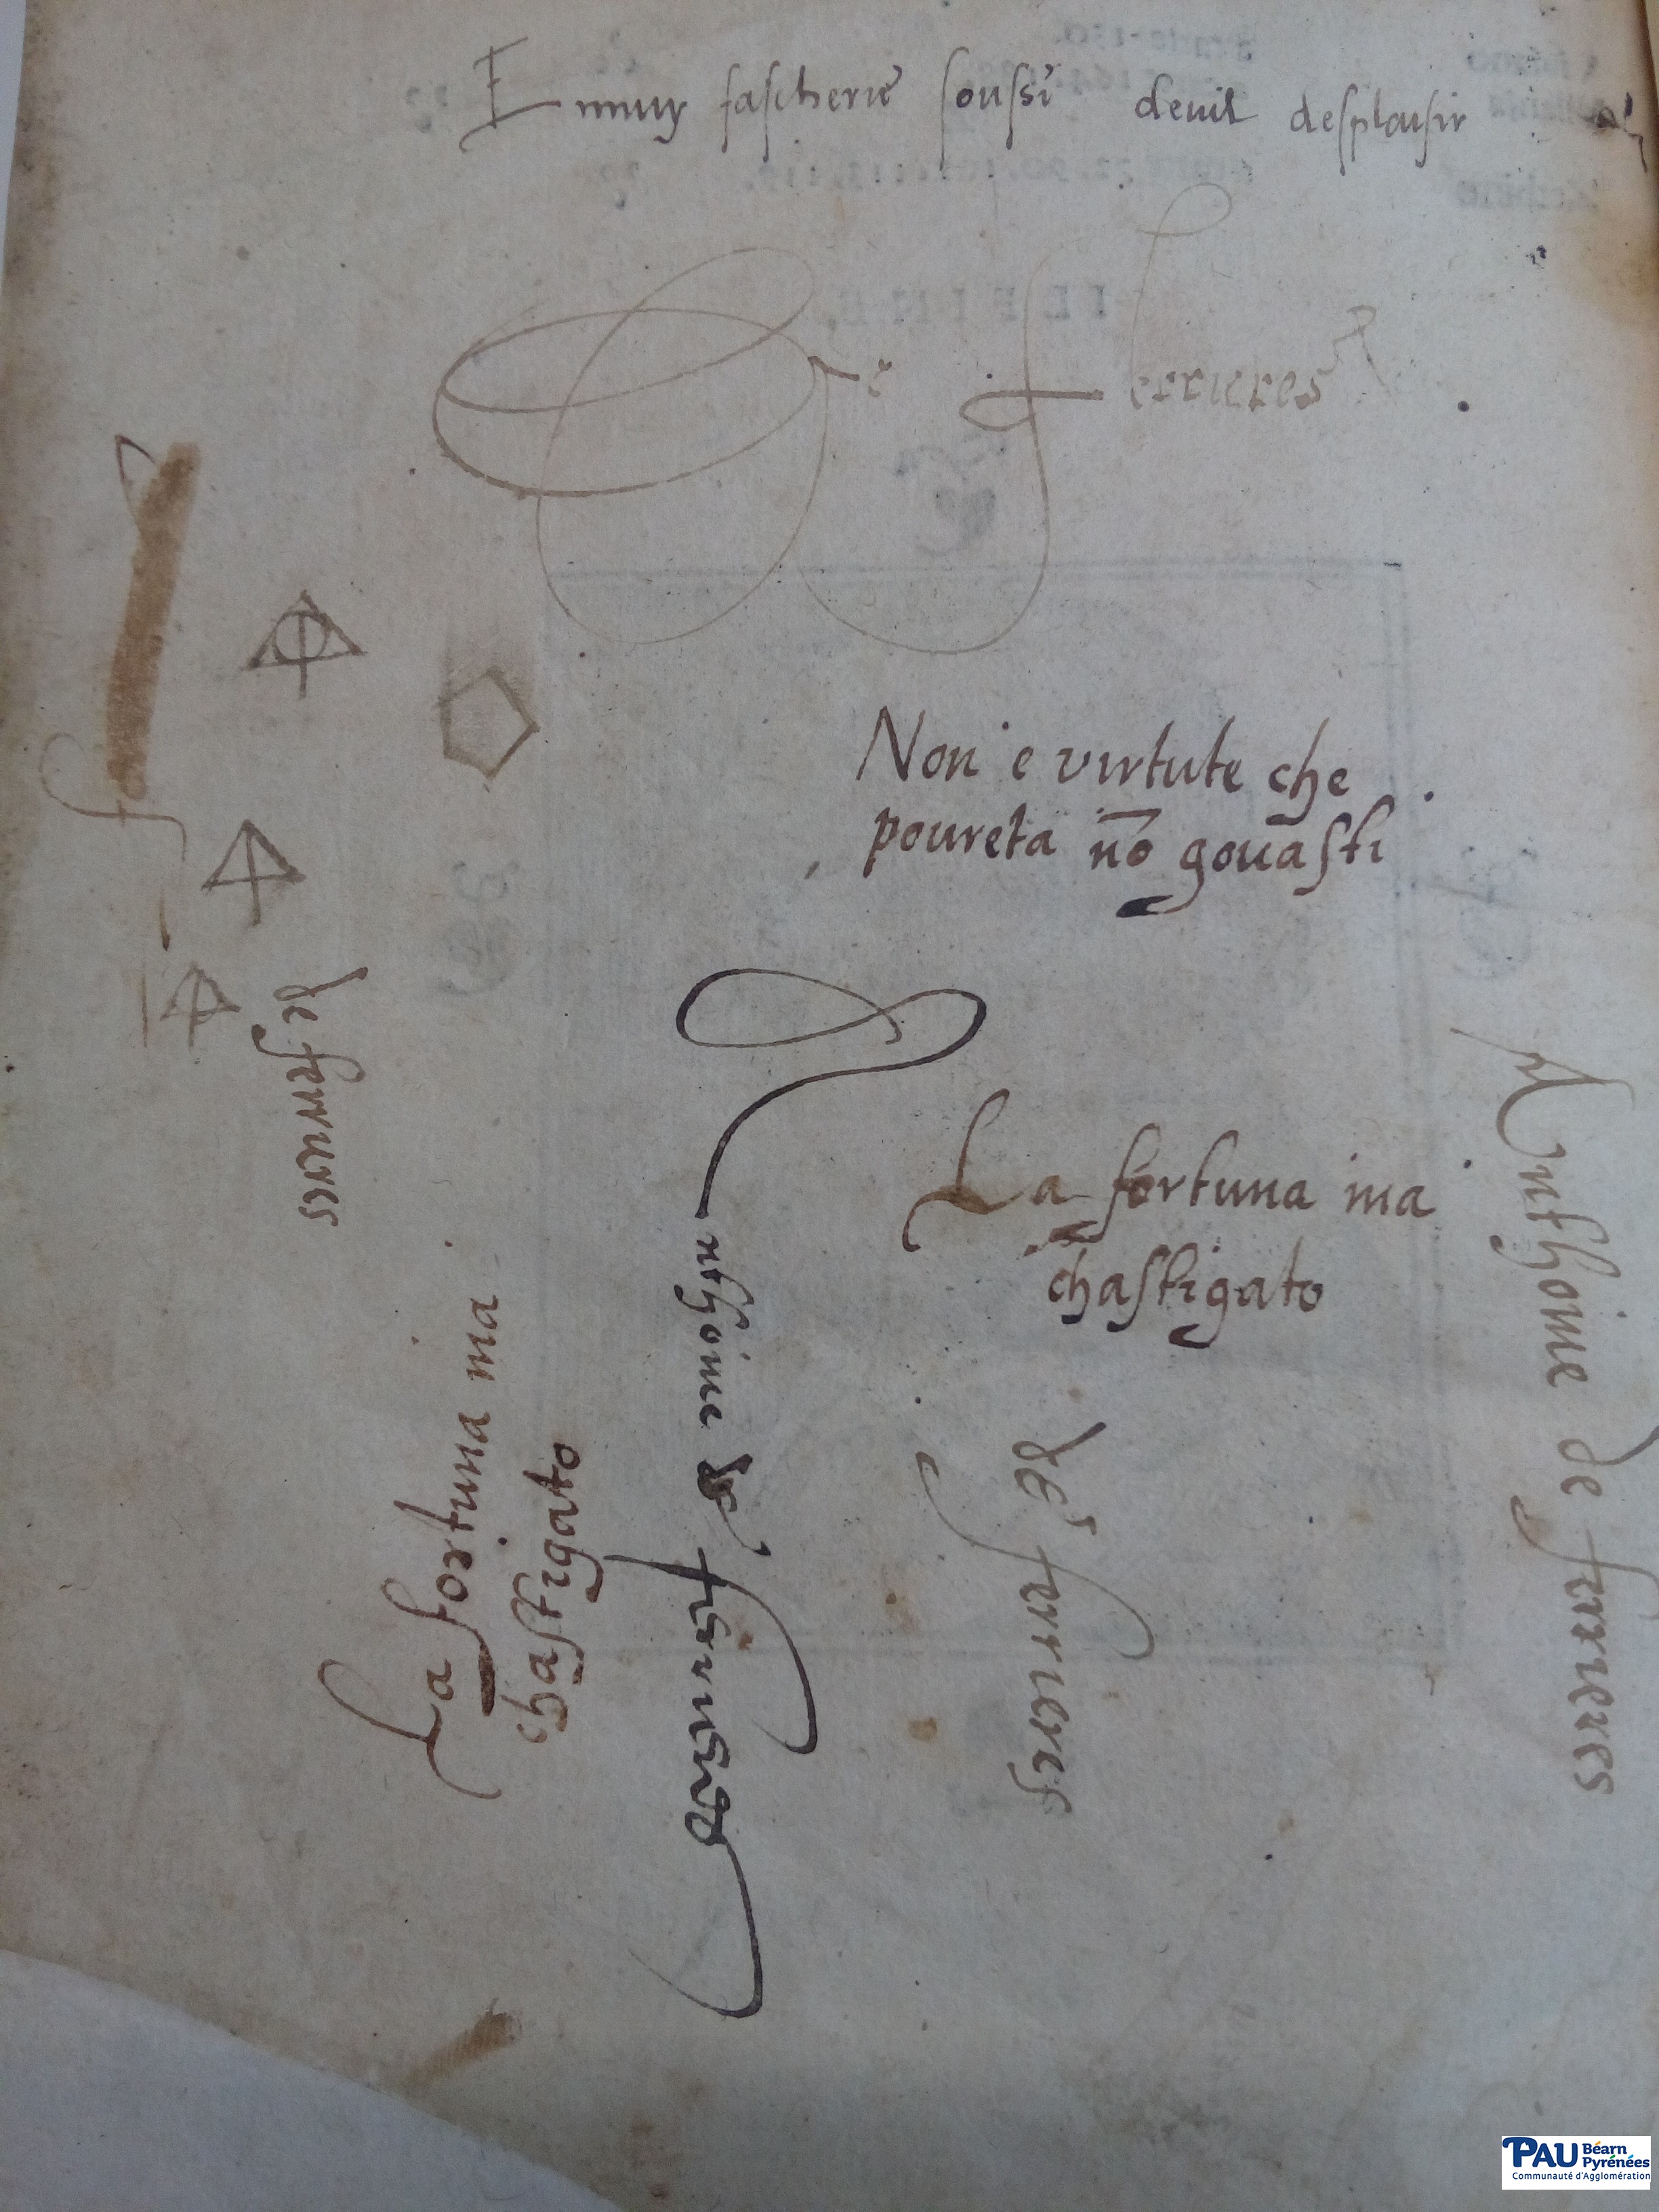 Ennuy fascherie soussi deuil desplaisir
De ferrieres
Non e virtute che
poureta nō gouasti
de ferrieres
La fortuna ma
chastigato
Anthoine de ferrieres
La fortuna ma
chastigato
nthoine de ferrieres
de ferrieres
PAU Béarn
Pyrénées
Communauté d'Agglomération